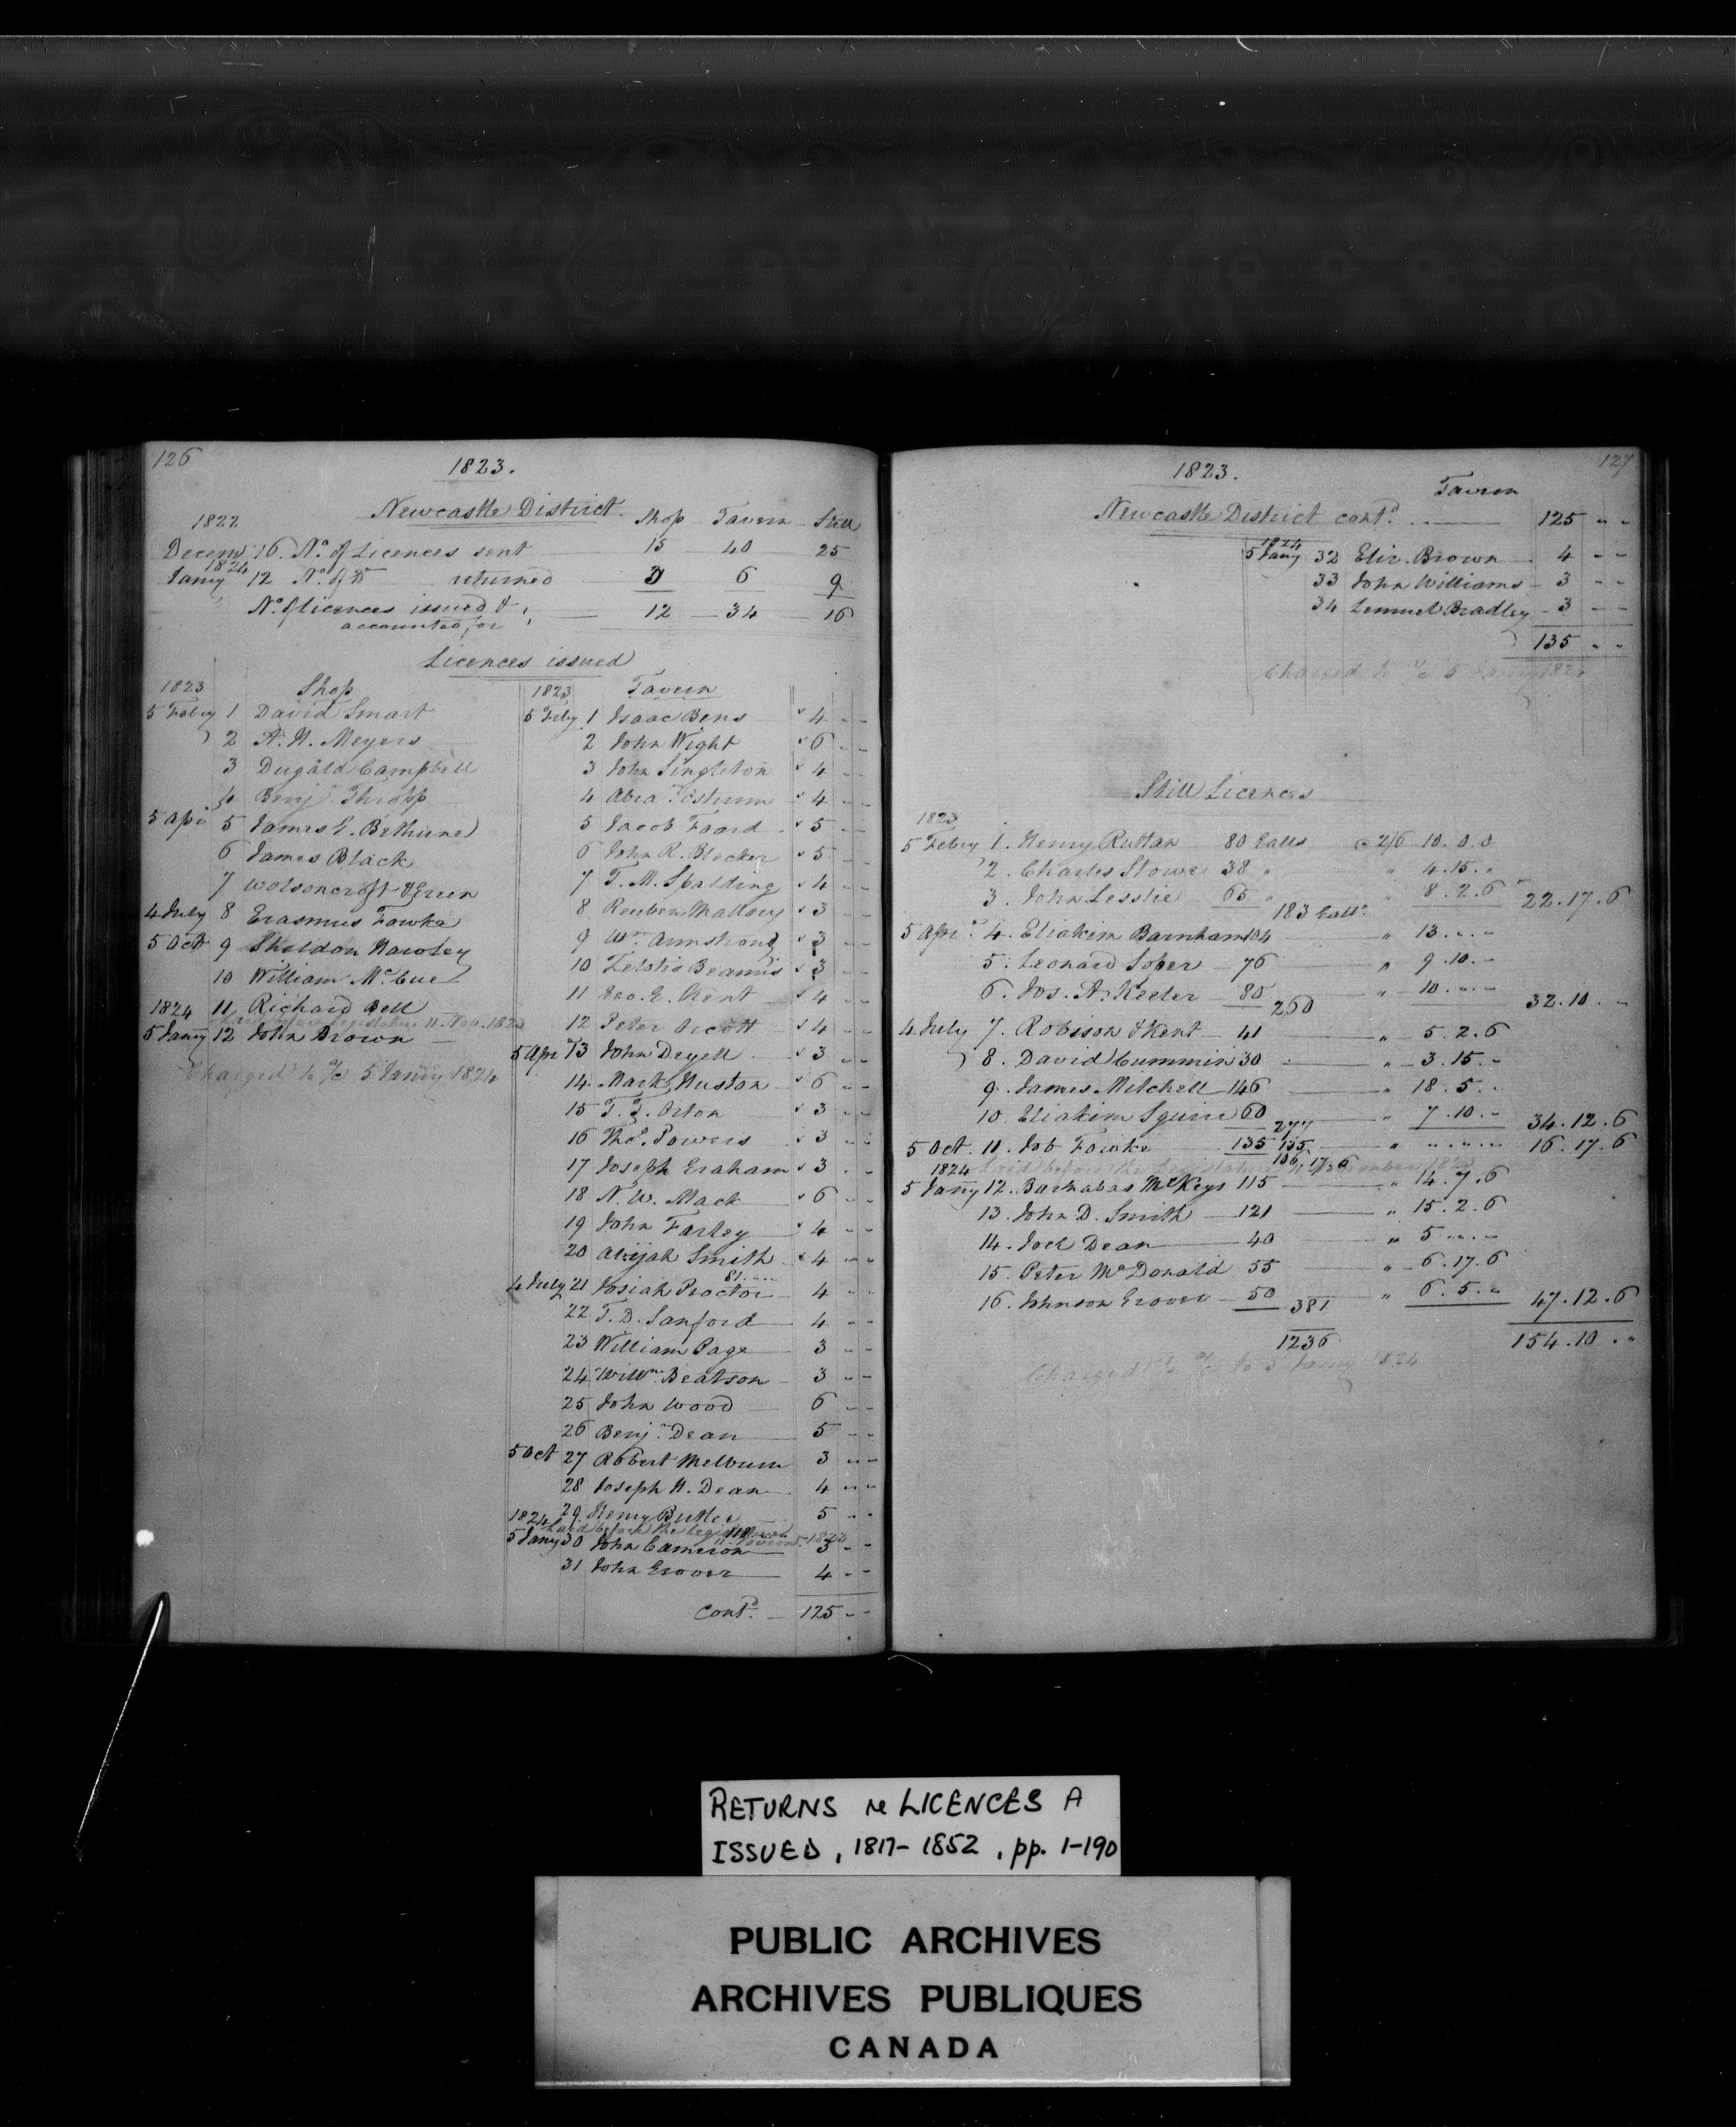 126
1823.
Newcastle District. Shop Tavern Still
1822
Decemr 16. No. of Licences sent 15 40 25
1824
Jany 12 No. of Do returned 3 6 9
No. of Licences issued & accounted for 12 34 16
Licences issued
1823 Shop
5 Feby 1 David Smart
2 A. H. Meyers
3 Dugald Campbell
4 Benjn Throop
5 Apr 5 James G. Bethune
6 James Black
7 Wolsoncroft & Green
4 July 8 Erasmus Fowke
5 Oct 9 Sheldon Hawley
10 William McCue
11 Richard Bell
Laid before Legislature 11. Nov. 1823
1824
5 Jany 12 John Brown
Charged to a/c 5 Jany 1824
1823 Tavern
5 Feby 1 Isaac Bens 4 " "
2 John Wight 6 " "
3 John Singleton 4 " "
4 Abram Ostrum 4 " "
5 Jacob Foord 5 " "
6 John R. Blecker 5 " "
7 T. M. Spalding 4 " "
8 Reuben Mallory 3 " "
9 Wm Armstrong 3 " "
10 Beamis 3 " "
11 Geo. G. Kent 4 " "
12 Peter Orcott 4 " "
5 Apr 13 John Deyell 3 " "
14 Mark Huston 6 " "
15 T. T. Orton 3 " "
16 Thos. Powers 3 " "
17 Joseph Graham 3 " "
18 N. W. Mack 6 " "
19 John Farley 4 " "
20 Abijah Smith 4 " "
81 " "
4 July 21 Josiah Proctor 4 " "
22 T. D. Sanford 4 " "
23 William Page 3 " "
24 Willm Beatson 3 " "
25 John Wood 6 " "
26 Benjn Dean 5 " "
5 Oct 27 Robert Melburn 3 " "
28 Joseph H. Dean 4 " "
29 Henry Butler 5 " "
Laid before the Legislature 1823
1824
5 Jany 30 John Cameron 3 " "
31 John Grover 4 " "
Contd. 125 " "
127
1823.
Tavern
Newcastle District contd. 125 " "
1824
5 Jany 32 Eliz. Brown 4 " "
33 John Williams 3 " "
34 Lemuel Bradley 3 " "
135 " "
Charged to a/c 5 Jany 1824
Still Licences
1823
5 Feby 1. Henry Ruttan 80 Galls @ 2/6 10. 0. 0
2. Charles Stowe 38 " " 4.15. "
3. John Lesslie 65 " " 8.2.6
183 Galls. 22.17.6
5 Apr. 4. Eliakim Barnham 104 " 13. " "
5. Leonard Soper 76 " 9.10. "
6. Jos. A. Keeler 80 " 10. " "
260 32.10. "
4 July 7. Robison & Kent 41 " 5.2.6
8. David Cummin 30 " 3.15. "
9. James Mitchell 146 " 18.5. "
10. Eliakim Squire 60 " 7.10. "
277 34.12.6
5 Oct. 11. Job Fowke 135 135 " " " " 16.17.6
106.17.6
Laid before the Legislature 11 November 1823
1824
5 Jany 12. Barnabas McKeys 115 " 14.7.6
13. John D. Smith 121 " 15.2.6
14. Joel Dean 40 " 5 " "
15. Peter McDonald 55 " 6.17.6
16. Johnson Grover 50 " 6.5. "
381 47.12.6
1236 154.10. "
Charged to a/c to 5 Jany 1824
RETURNS re LICENCES A
ISSUED, 1817-1852, pp. 1-190
PUBLIC ARCHIVES
ARCHIVES PUBLIQUES
CANADA